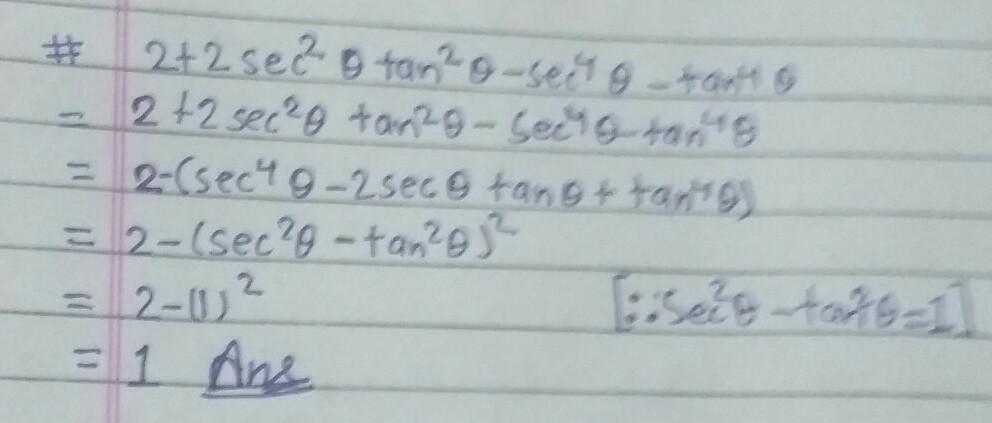 # 2+2 sec² θ tan² θ - sec⁴ θ - tan⁴ θ
= 2+2 sec²θ tan²θ - sec⁴θ - tan⁴θ
= 2-(sec⁴ θ - 2 sec θ tan θ + tan⁴θ)
= 2-(sec²θ - tan²θ)²
= 2-(1)² [∵ sec²θ - tan²θ = 1]
= 1 Ans